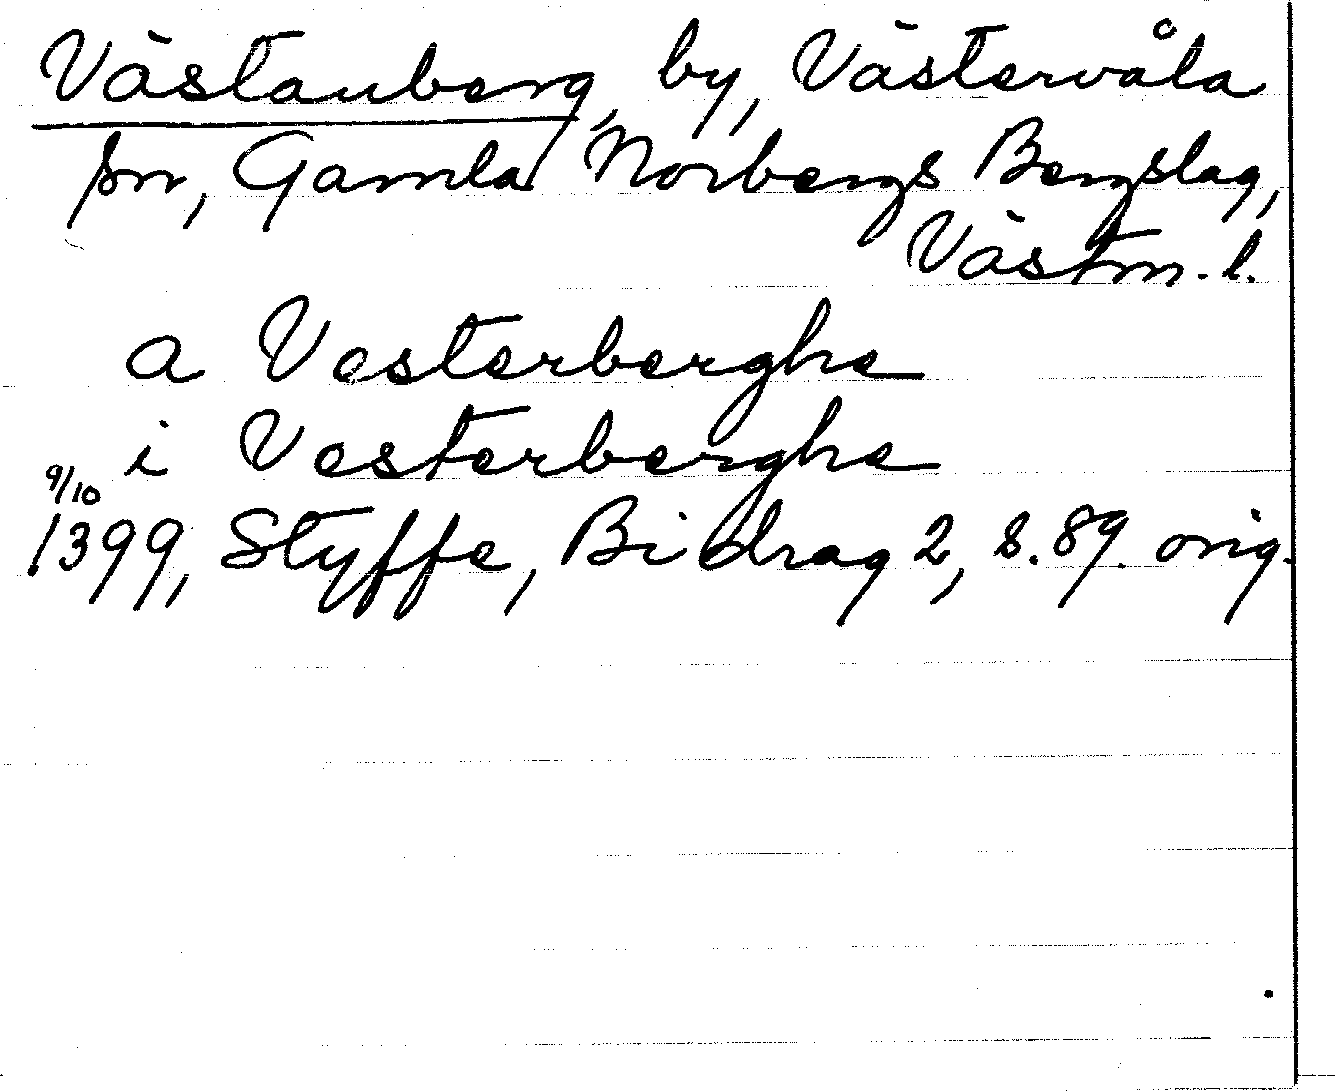 Västanberg, by, Västervåla
sn, Gamla Norbergs Bergslag,
Västm. l.
a Vesterberghe
i Vesterberghe
9/10
1399, Styffe, Bidrag 2, s. 89. orig.